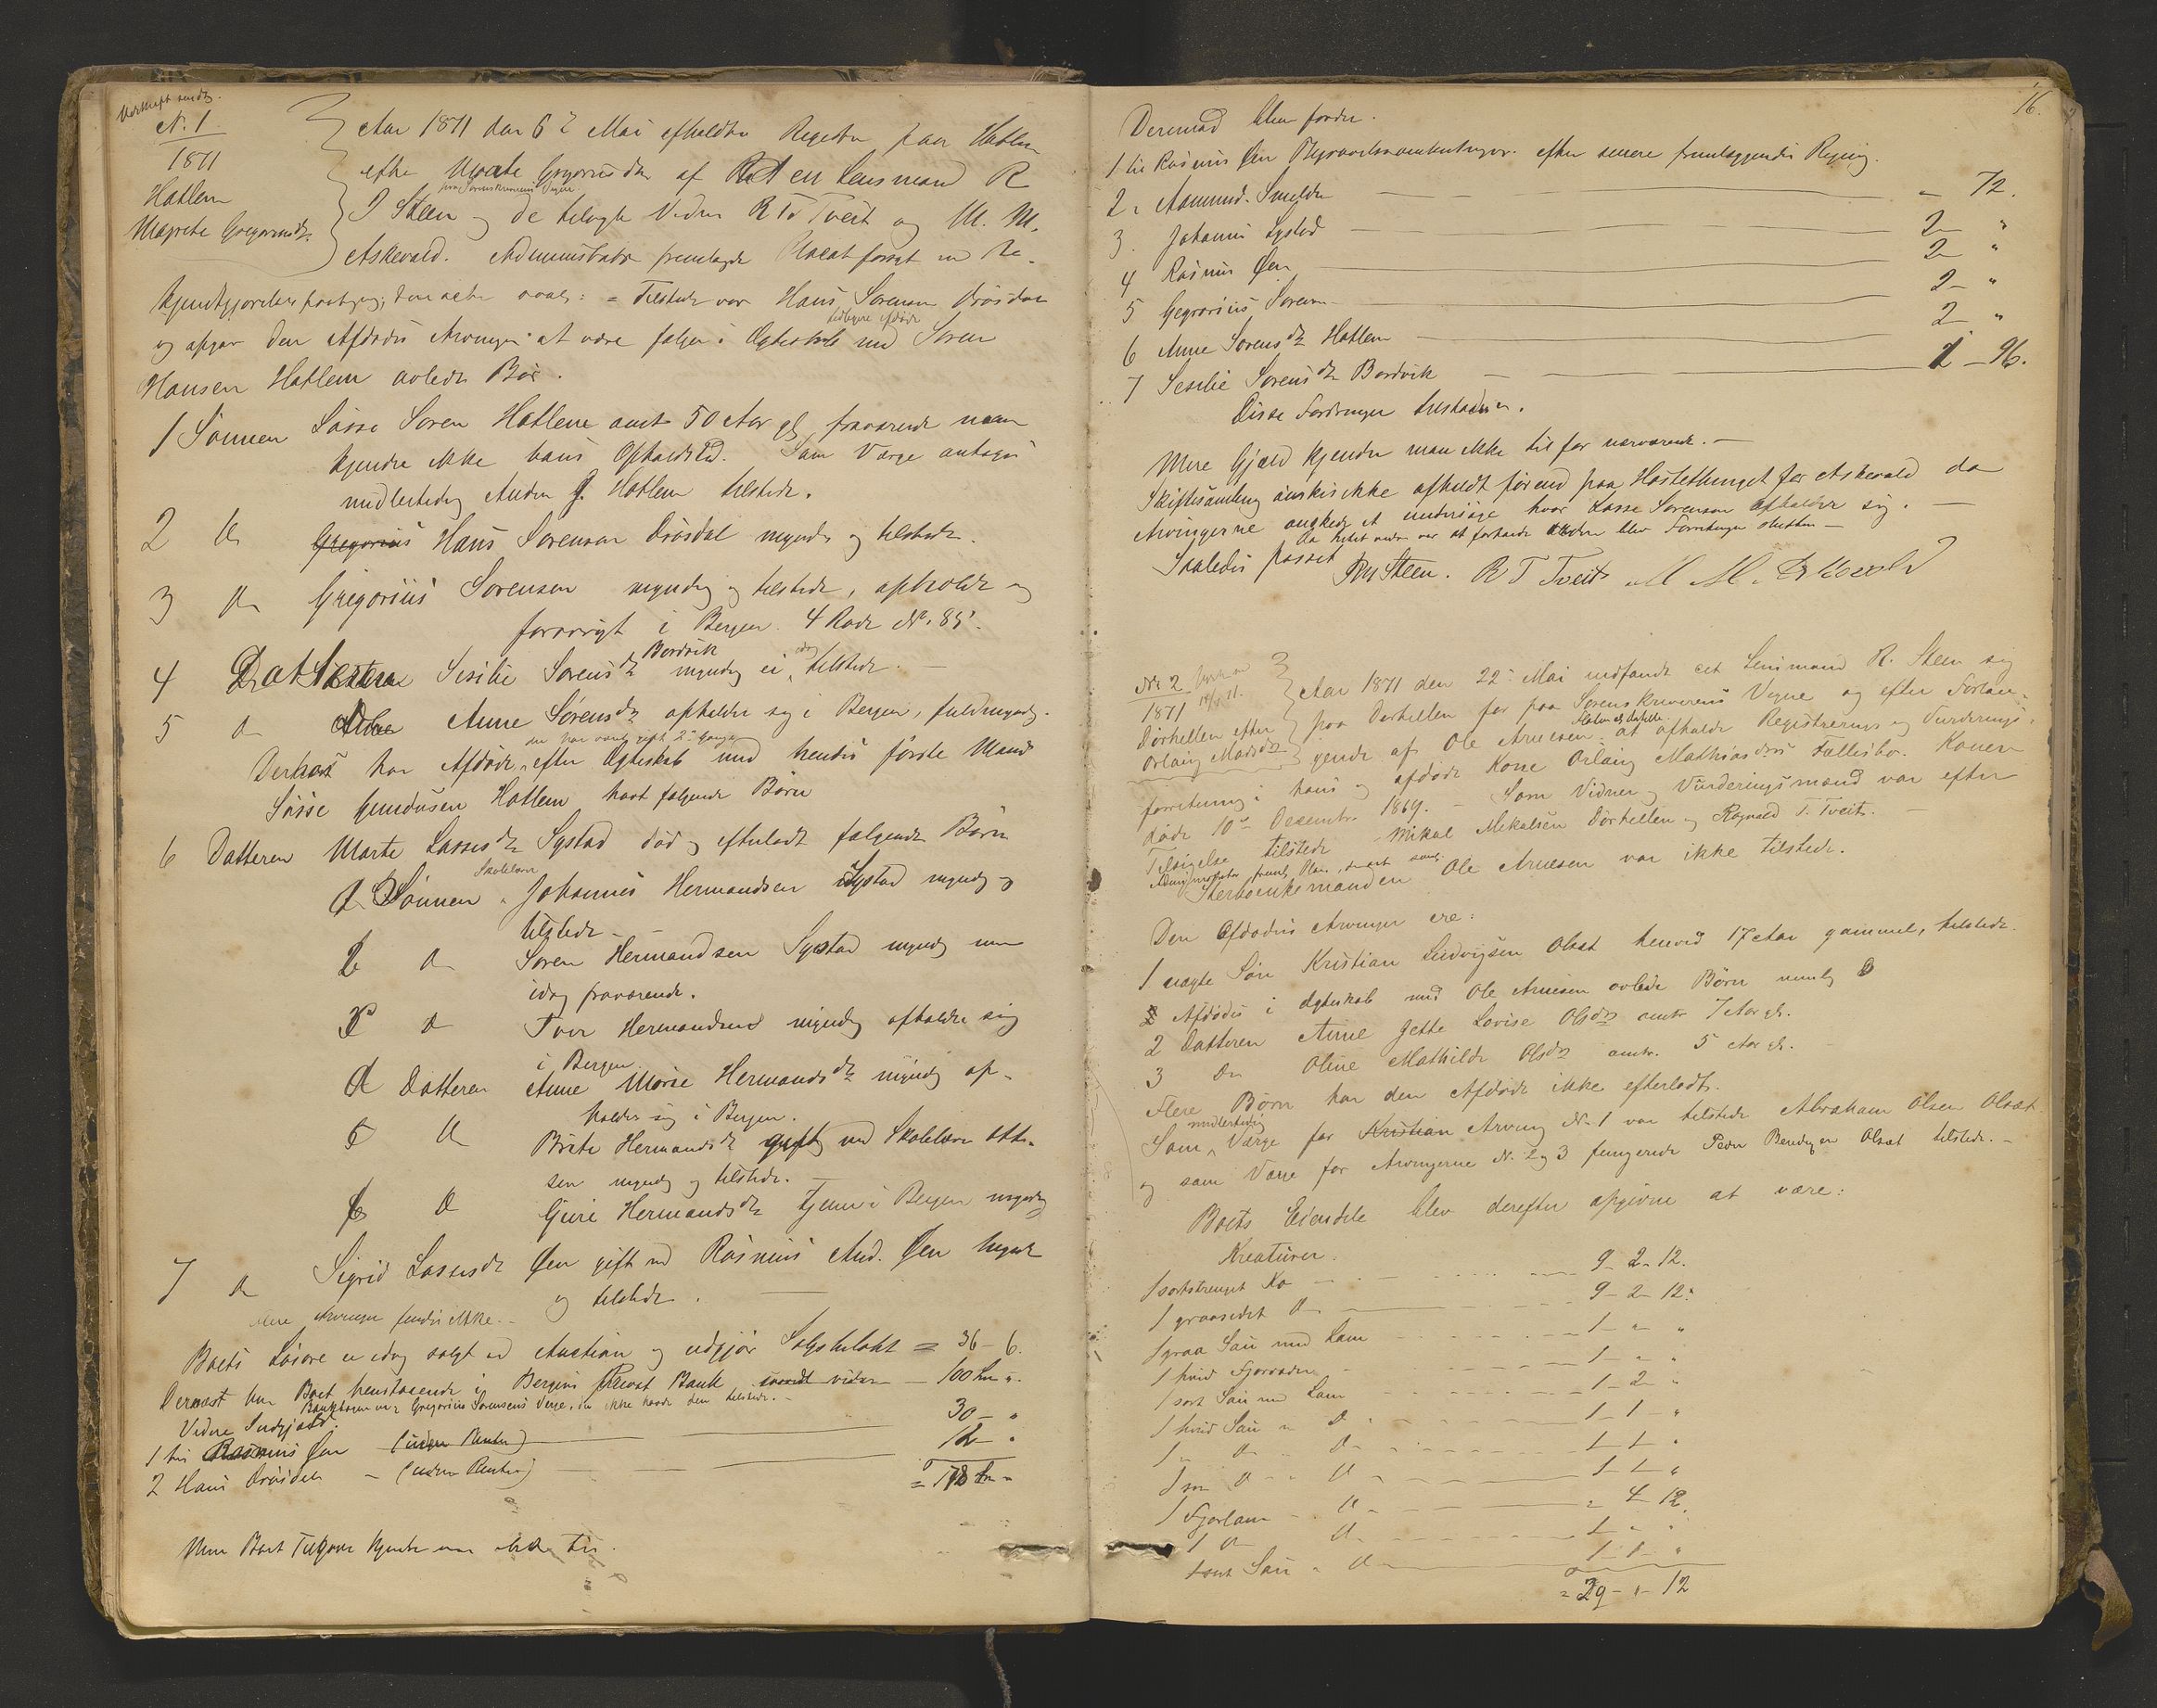 No. 1
1871
Hatlem
Magrete Gregoriusdtr
Aar 1871 den 6te Mai afholdtes Registr paa Hatlem
efter Magrete Gregoriusdtr af Lensmand R
paa Sorenskriverens Vegne
J Steen og de tilsagte Vidner R T Tveit og M. M.
Askevold. Administrator fremlagde Placat forsynt med Be-
kjendtgjørelses paategning, = Tilstede var Hans Sørensen Drøsdal
og opgav den Afdødes Arvinger at være følgende i Ægteskab med Søren
Hansen Hatlem avlede Børn.
1 Sønnen Lasse Søren Hatlem omt 50 Aar gl fraværende man
kjender ikke hans Opholdsted. Som Værge antoges
midlertidig Anders J. Hatlem tilstede.
2 do Gregorius Hans Sørensen Drøsdal myndig og tilstede.
3 do Gregorius Sørensen myndig og tilstede, opholder sig
forøvrigt i Bergen 4 Rode No. 85.
Bordvik
4 Datteren Sesilie Sørensdtr myndig ei tilstede. —
5 do Anne Sørensdtr opholder sig i Bergen, fuldmyndig.
der har været gift 2de Gange
Derhos har Afdøde efter Ægteskab med hendes første Mand
Lasse Gundersen Hatlem havt følgende Børn
6 Datteren Marte Lassesdtr Systad død og efterladt følgende Børn
Skolelærer
Sønnen Johannes Hermandsen Systad myndig og
tilstede —
do Søren Hermandsen Systad myndig men
idag fraværende.
do Iver Hermandsen myndig opholder sig
i Bergen
Datteren Anne Marie Hermandsdtr myndig op-
holder sig i Bergen.
do Brite Hermandsdtr gift med Skolelærer Otte-
sen myndig og tilstede.
do Guri Hermandsdtr tjener i Bergen myndig
7 do Sigrid Lassesdtr Øen gift med Rasmus And. Øen myndig
og tilstede.
Flere Arvinger findes ikke. —
Boets Løsøre er idag solgt ved Auction og udgjør Salgsbeløbet = 36 - 6.
Dernæst har Boet henstaaende i Bergens Privat Bank videre — 100 "
Bankbogen var i Gregorius Sørensens Verge, der ikke havde den tilstede. —
Videre Indgjæld
1 hos Rasmus Øen (uden Renter) — 30 - "
2 Hans Drøsdal — (uden Renter) — 12 - "
= 178
Mere Boet Tilhørende kjendte man ikke til.
16.
Derimod blev fordret.
1 til Rasmus Øen Begravelsesomkostninger efter senere fremlæggende Regning.
2. Aamund Smelden — " 72.
3. Johannes Systad — 2 - "
4 Rasmus Øen — 2 - "
5 Gregorius Sørensen — 2 - "
6 Anne Sørensdtr Hatlem — 2 - "
7 Sesilie Sørensdtr Bordvik — 1 - 96.
Disse Fordringer tilstodes.
Mere Gjæld kjender man ikke til for nærværende. —
Skiftesamling ønskes ikke afholdt førend paa Høstethinget for Askevold da
Arvingerne ønskede at undersøge hvor Lasse Sørensen opholder sig. —
Da Intet videre var at forhandle blev Forretningen sluttet —
Saaledes passet
RJ Steen. R T Tveit M M Askevold
No. 2
1871
Dørhellen efter
Orlaug Madsdtr
Aar 1871 den 22de Mai indfandt cst Lensmand R. Steen sig
paa Dørhellen for paa Sorenskriverens Vegne og efter Forlan-
gende af Ole Arnesen at afholde Registrerings og Vurderings-
forretning i hans og afdøde Kone Orlaug Mathiasdtrs Fællesbo. Konen
døde 10de Decembr 1869. — Som Vidner og Vurderingsmænd var efter
Tilsigelse tilstede Mikal Mikalsen Dørhellen og Ragnald T. Tveit. —
Sterboenkemanden Ole Arnesen var ikke tilstede.
Den Afdødes Arvinger ere:
1 uægte Søn Kristian Ludvigsen Olset henved 17 Aar gammel, tilstede.
Afdødes i Ægteskab med Ole Arnesen avlede Børn nemlig
2 Datteren Anne Jette Lovise Olsdtr omtr 7 Aar gl.
3 do Oline Mathilde Olsdtr omtr. 5 Aar gl. —
Flere Børn har den Afdøde ikke efterladt.
midlertidig
Som Værge for Kristian Arving No. 1 var tilstede Abraham Olsen Olset
og som Værge for Arvingerne No. 2 og 3 fungerende Peder Olset tilstede. —
Boets Eiendele blev derefter opgivne at være:
Kreaturer.
1 sortstrenget Ko — 9 - 2 - 12.
1 graasidet do — 9 - 2 - 12.
1 graa Sau med Lam — 1 - " - "
1 hvid Gjorsau — 1 - " - "
1 sort Sau med Lam — 1 - 2 - "
1 hvid Sau " do — 1 - 1 - "
1 " do " do — 1 - 1 - "
1 do " do — 1 - 1 - "
1 Gjorlam — do — " 4 - 12.
1 do do — 1 - " - "
1 sort Sau " do — 1 - 1 - "
= 29 - " - 12